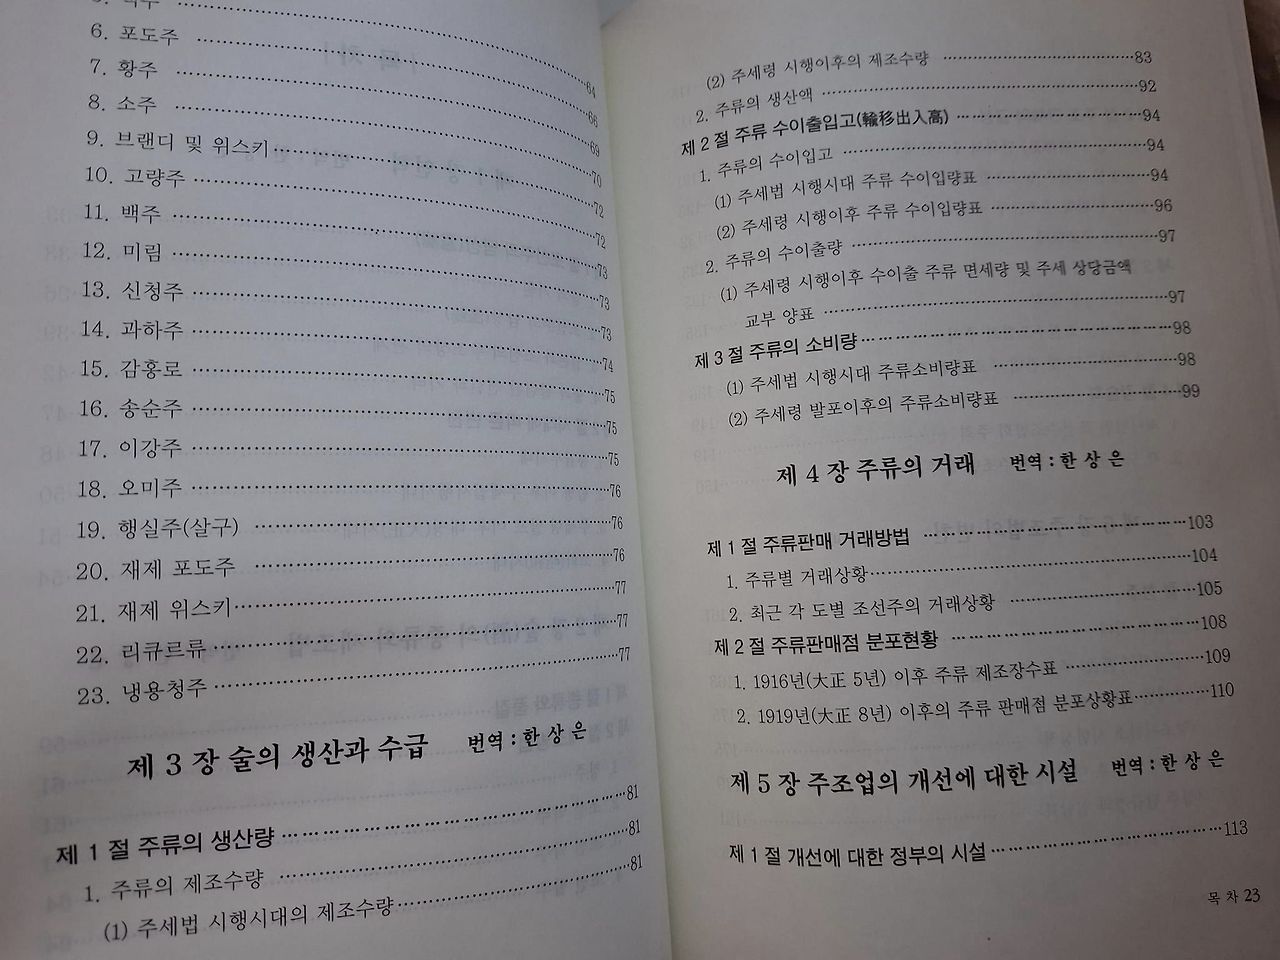 64
6. 포도주 ……66
7. 황주 ……69
8. 소주 ……70
9. 브랜디 및 위스키……72
10. 고량주……72
11. 백주 ……73
12. 미림 ……73
13. 신청주 ……73
14. 과하주 ……74
15. 감홍로 ……75
16. 송순주 ……75
17. 이강주 ……75
18. 오미주 ……76
19. 행실주(살구) ……76
20. 재제 포도주 ……76
21. 재제 위스키……77
22. 리큐르류 ……77
23. 냉용청주……77
제 3 장 술의 생산과 수급 번역 : 한 상 은
제 1 절 주류의 생산량 ……81
1. 주류의 제조수량 ……81
(1) 주세법 시행시대의 제조수량……81
(2) 주세령 시행이후의 제조수량 ……83
2. 주류의 생산액 ……92
제 2 절 주류 수이출입고(輸移出入高) ……94
1. 주류의 수이입고 ……94
(1) 주세법 시행시대 주류 수이입량표 ……94
(2) 주세령 시행이후 주류 수이입량표 ……96
2. 주류의 수이출량 ……97
(1) 주세령 시행이후 수이출 주류 면세량 및 주세 상당금액
교부 양표 ……97
제 3 절 주류의 소비량……98
(1) 주세법 시행시대 주류소비량표 ……98
(2) 주세령 발포이후의 주류소비량표 ……99
제 4 장 주류의 거래 번역 : 한 상 은
제 1 절 주류판매 거래방법 ……103
1. 주류별 거래상황……104
2. 최근 각 도별 조선주의 거래상황 ……105
제 2 절 주류판매점 분포현황 ……108
1. 1916년(大正 5년) 이후 주류 제조장수표 ……109
2. 1919년(大正 8년) 이후의 주류 판매점 분포상황표……110
제 5 장 주조업의 개선에 대한 시설 번역 : 한 상 은
제 1 절 개선에 대한 정부의 시설……113
목 차 23